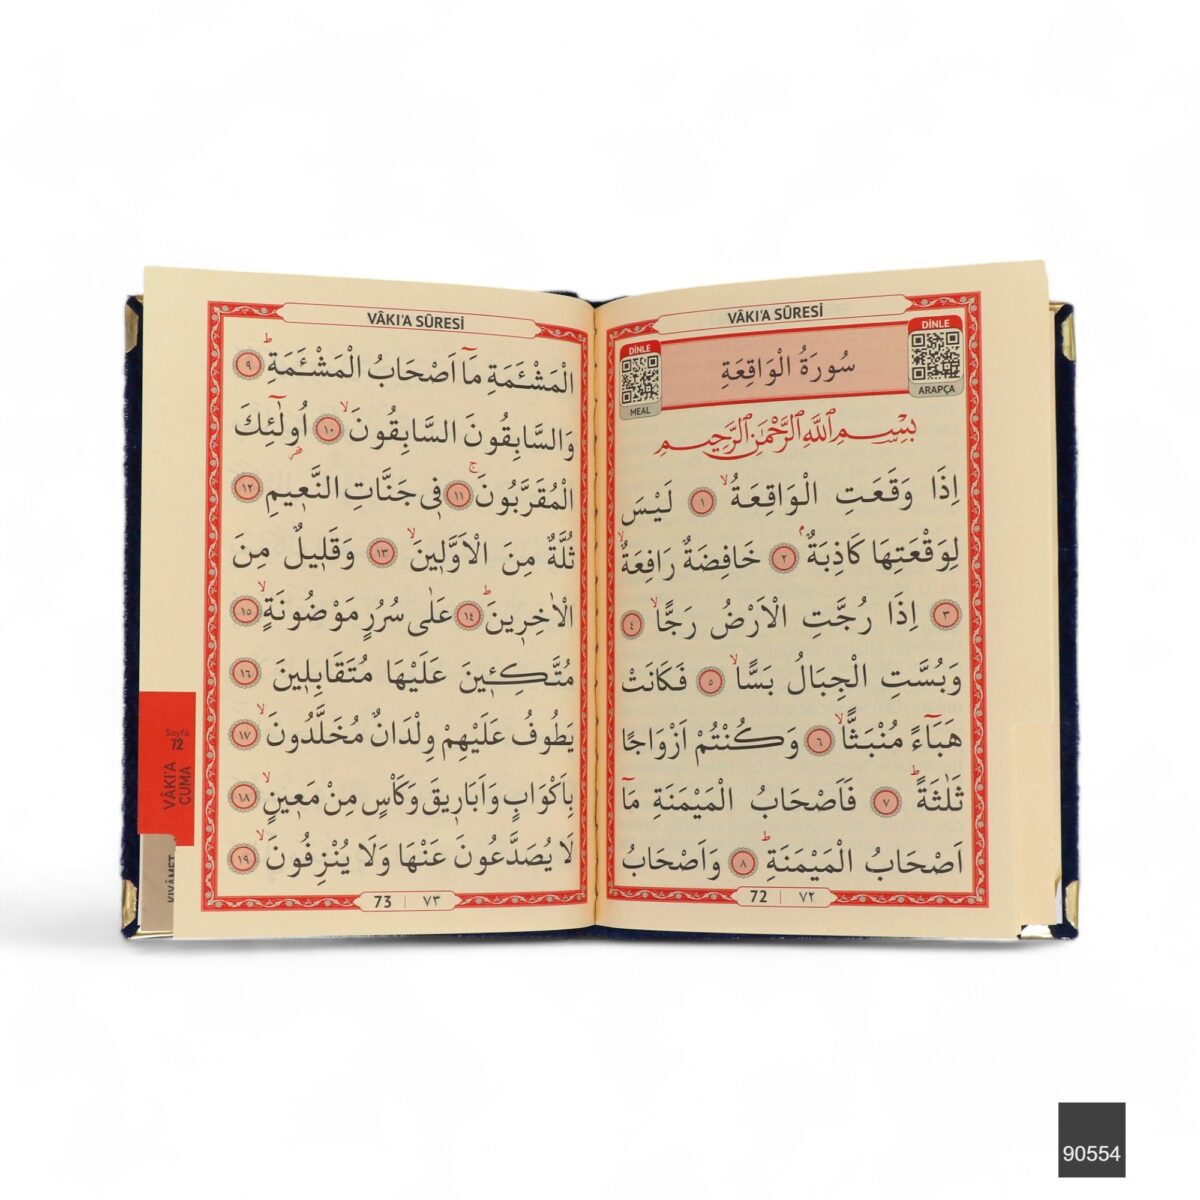 VÂKI'A SÛRESİ
DİNLE
MEAL
سُورَةُ الْوَاقِعَةِ
DİNLE
ARAPÇA
بِسْمِ اللّٰهِ الرَّحْمٰنِ الرَّحِيمِ
اِذَا وَقَعَتِ الْوَاقِعَةُۙ ﴿١﴾ لَيْسَ
لِوَقْعَتِهَا كَاذِبَةٌۢ ﴿٢﴾ خَافِضَةٌ رَافِعَةٌۙ
﴿٣﴾ اِذَا رُجَّتِ الْاَرْضُ رَجًّاۙ ﴿٤﴾
وَبُسَّتِ الْجِبَالُ بَسًّاۙ ﴿٥﴾ فَكَانَتْ
هَبَٓاءً مُنْبَثًّاۙ ﴿٦﴾ وَكُنْتُمْ اَزْوَاجًا
ثَلٰثَةًۜ ﴿٧﴾ فَاَصْحَابُ الْمَيْمَنَةِ مَٓا
اَصْحَابُ الْمَيْمَنَةِۜ ﴿٨﴾ وَاَصْحَابُ
72 | ٧٢
VÂKI'A SÛRESİ
الْمَشْـَٔمَةِ مَٓا اَصْحَابُ الْمَشْـَٔمَةِۜ ﴿٩﴾
وَالسَّابِقُونَ السَّابِقُونَۙ ﴿١٠﴾ اُولٰٓئِكَ
الْمُقَرَّبُونَۚ ﴿١١﴾ فِي جَنَّاتِ النَّعِيمِ ﴿١٢﴾
ثُلَّةٌ مِنَ الْاَوَّلِينَۙ ﴿١٣﴾ وَقَلِيلٌ مِنَ
الْاٰخِرِينَۜ ﴿١٤﴾ عَلٰى سُرُرٍ مَوْضُونَةٍۙ ﴿١٥﴾
مُتَّكِـِٔينَ عَلَيْهَا مُتَقَابِلِينَ ﴿١٦﴾
يَطُوفُ عَلَيْهِمْ وِلْدَانٌ مُخَلَّدُونَۙ ﴿١٧﴾
بِاَكْوَابٍ وَاَبَارِيقَ وَكَأْسٍ مِنْ مَعِينٍۙ ﴿١٨﴾
لَا يُصَدَّعُونَ عَنْهَا وَلَا يُنْزِفُونَۙ ﴿١٩﴾
73 | ٧٣
Sayfa
72
VÂKI'A
CUMA
KIYÂMET
90554